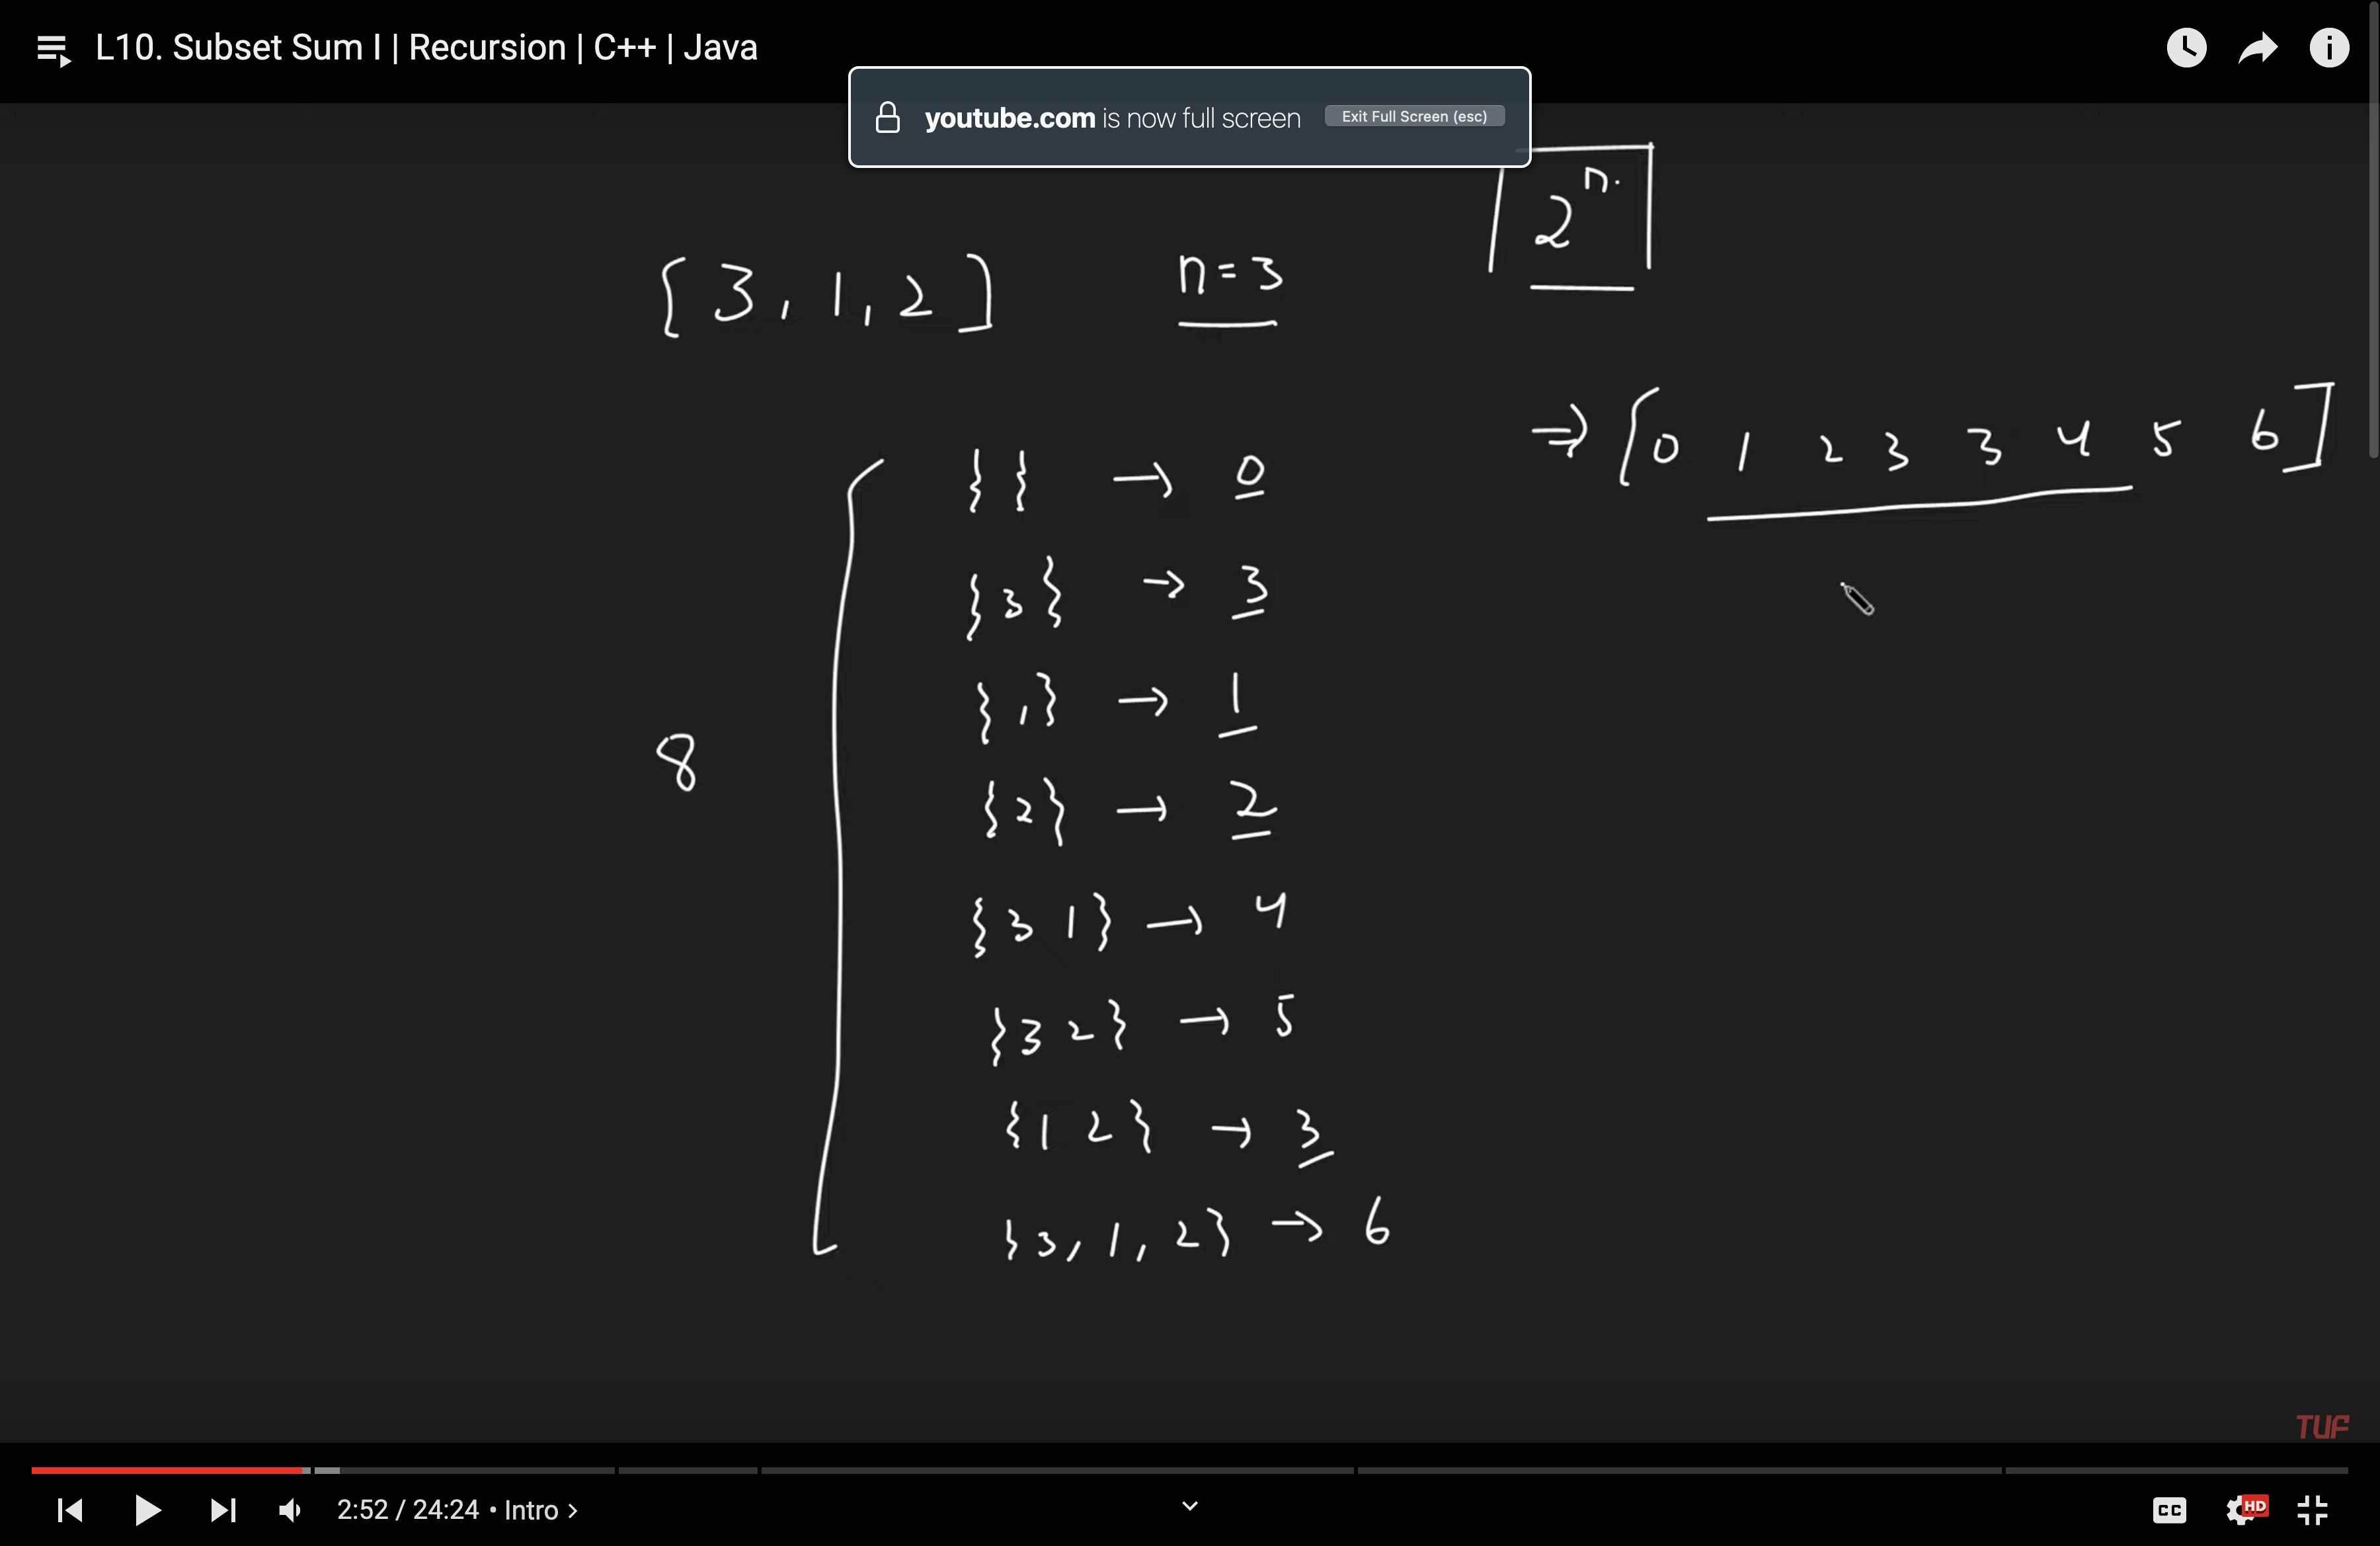 L10. Subset Sum I | Recursion | C++ | Java
youtube.com is now full screen Exit Full Screen (esc)
2^n.
[ 3, 1, 2 ] n=3
⇒ [ 0 1 2 3 3 4 5 6 ]
{ } → 0
{ 3 } → 3
{ 1 } → 1
{ 2 } → 2
8
{ 3 1 } → 4
{ 3 2 } → 5
{ 1 2 } → 3
{ 3, 1, 2 } → 6
TUF
2:52 / 24:24 • Intro >
CC HD